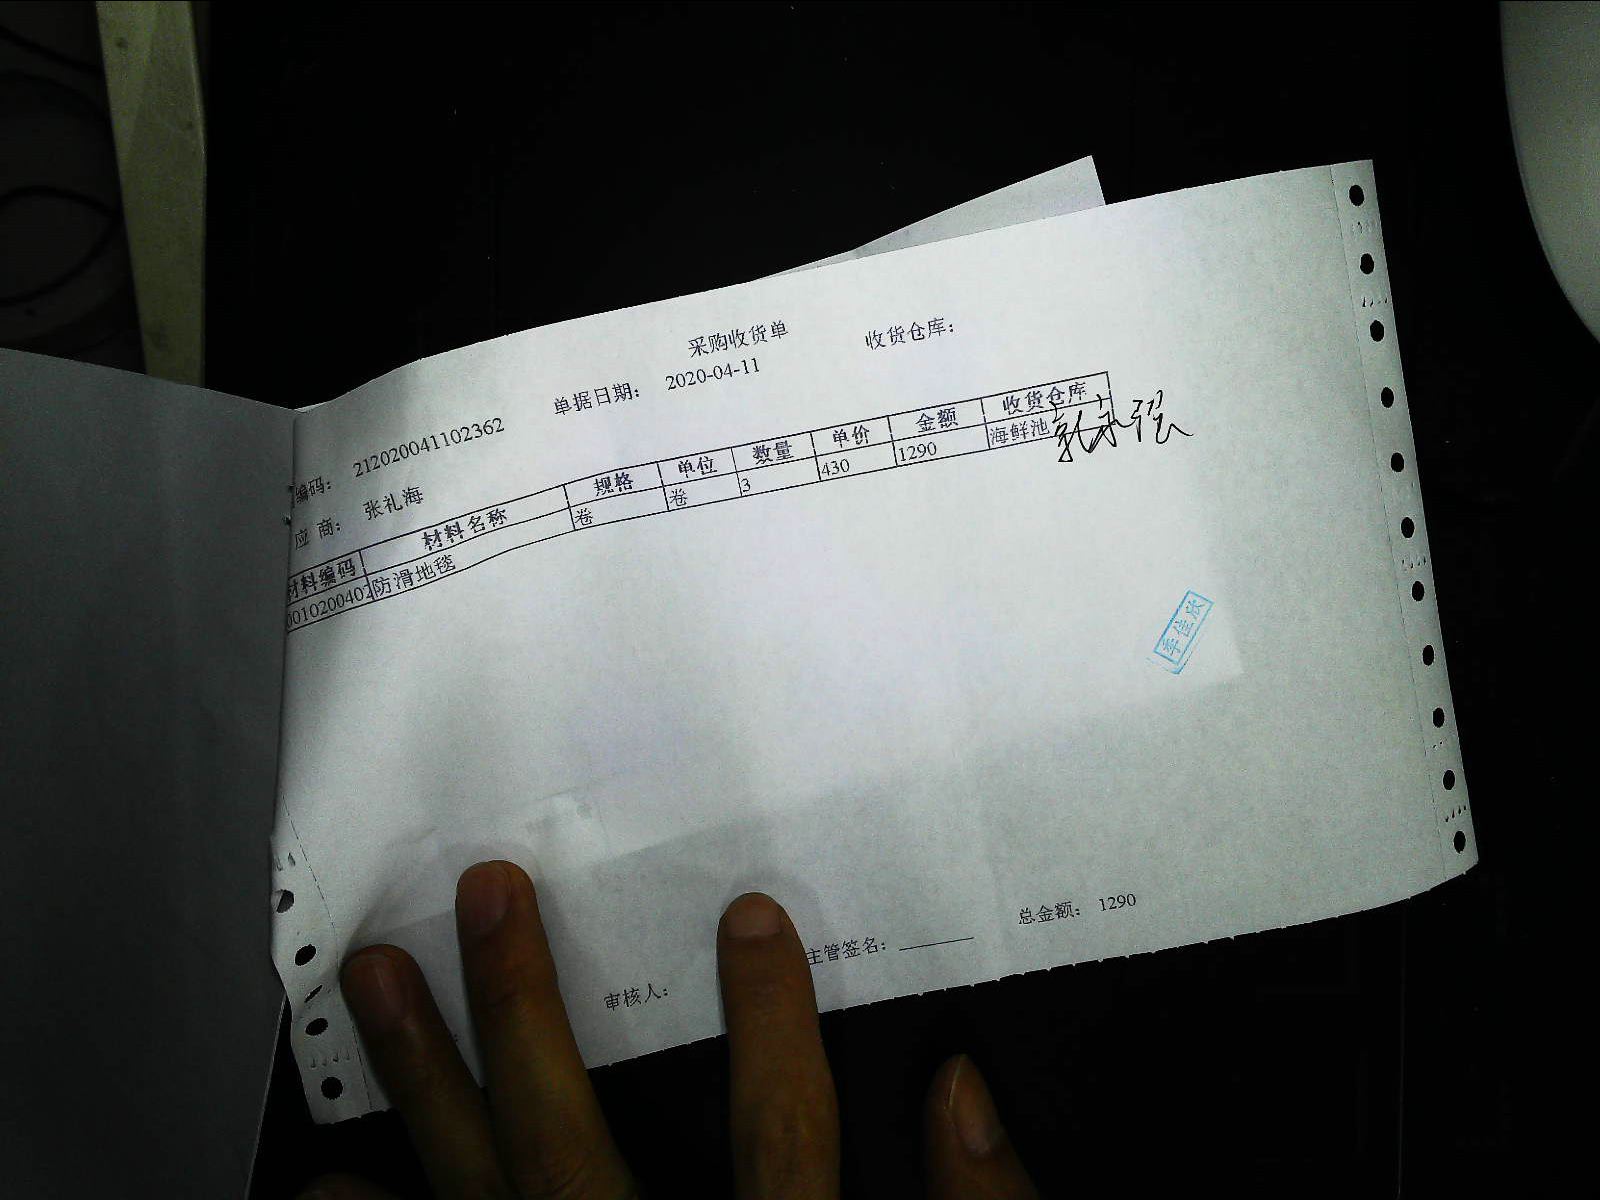 采购收货单
编码： 212020041102362 单据日期： 2020-04-11 收货仓库：
应 商： 张礼海
材料编码 材料名称 规格 单位 数量 单价 金额 收货仓库
0010200402 防滑地毯 卷 卷 3 430 1290 海鲜池
李佳欣
审核人： 主管签名： 总金额： 1290